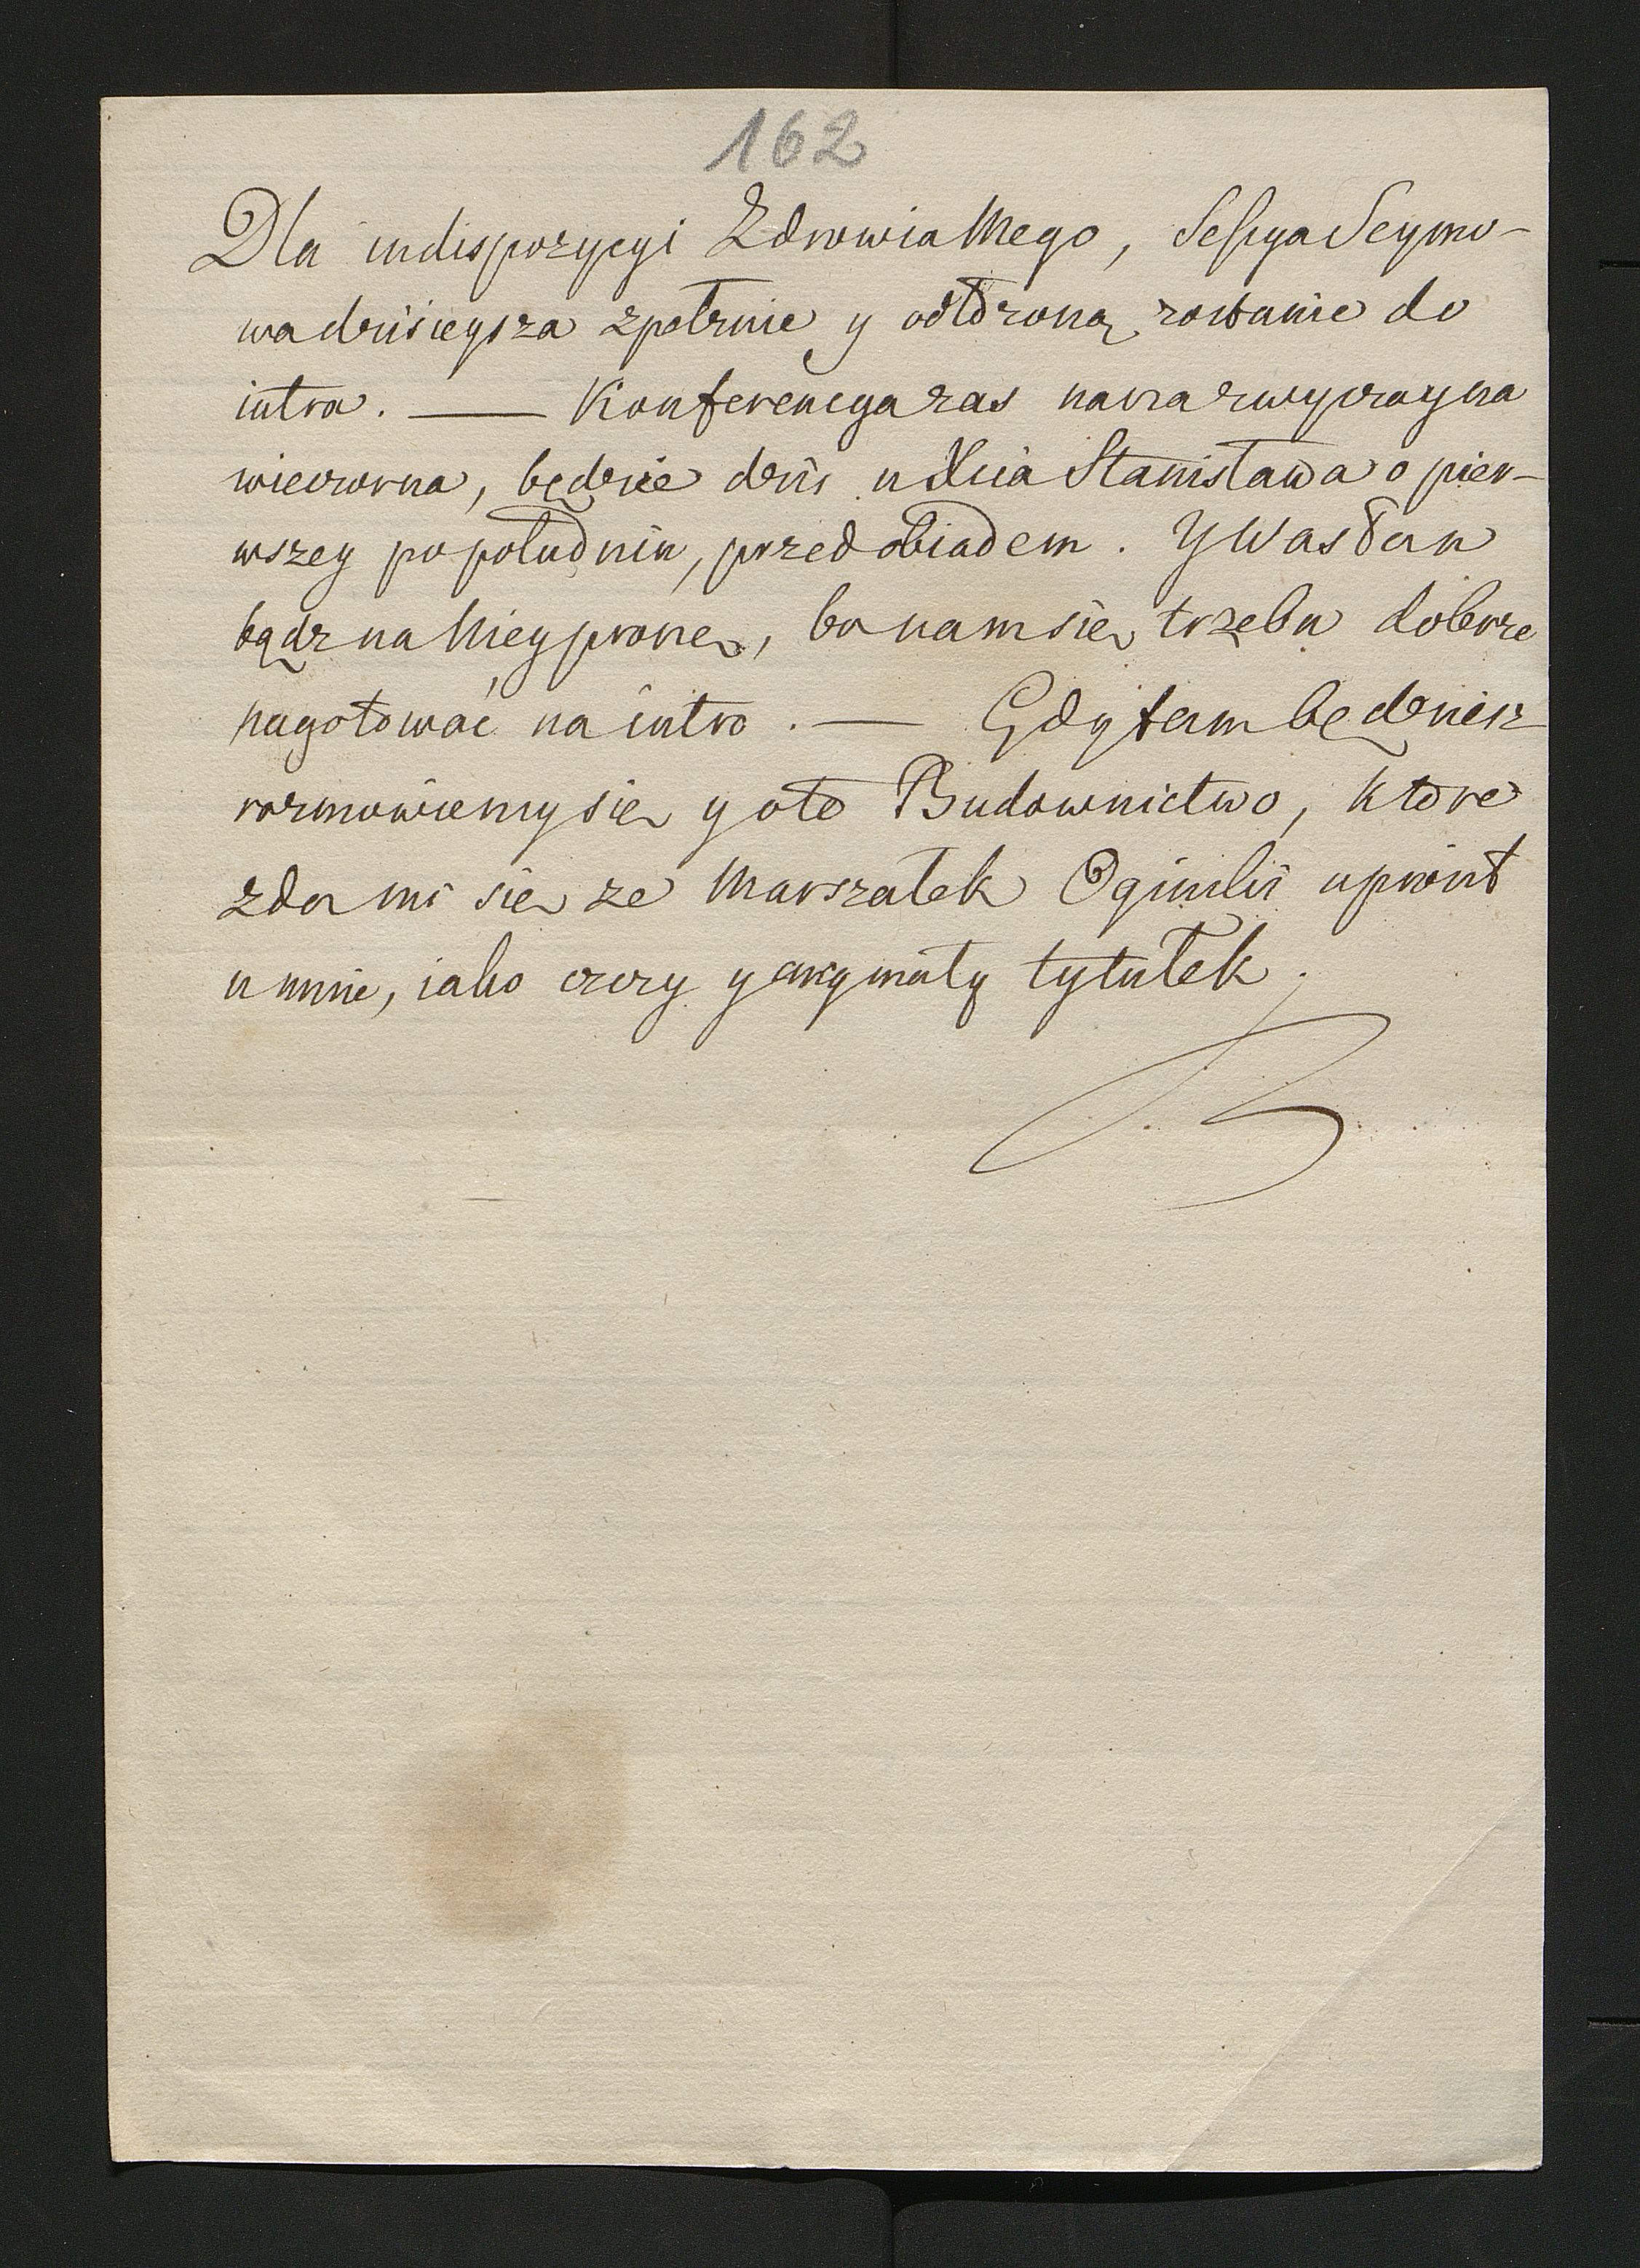 162
Dla indispozycyi Zdrowia Mego, Sessya Seymo-
wa dzisieysza zpełznie y odłożoną zostanie do
iutra. — Konferencya zas nasza zwyczayna
wieczorna, będzie dziś u Xcia Stanisława o pier-
wszey popołudniu, przed obiadem. Y Waspan
bądz na Niey prosze, bo nam się trzeba dobrze
nagotować na iutro. — Gdy tam będziesz
rozmowiemy się y o to Budownictwo, ktore
zda mi się ze Marszałek Oginski uprosił
u mnie, iako czczy y
tytułek.